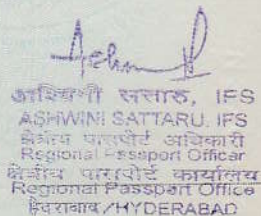 अश्विनी सत्तारु, IFS
ASHWINI SATTARU, IFS
क्षेत्रीय पासपोर्ट अधिकारी
Regional Passport Officer
क्षेत्रीय पासपोर्ट कार्यालय
Regional Passport Office
हैदराबाद/HYDERABAD